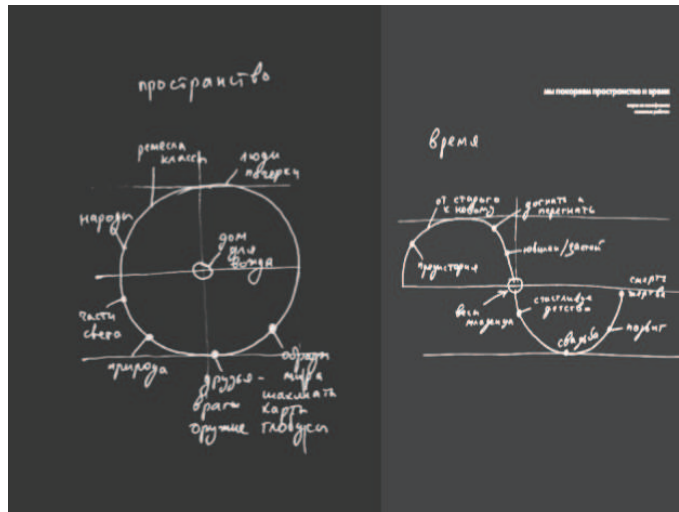 пространство
ремесла
классы
люди
почерки
народы
дом
для
вождя
части
света
природа
друзья-
враги
оружие
образы
мира
шахматы
карты
глобусы
мы покоряем пространство и время
время
от старого
к новому
догнать и
перегнать
предистория
юбилеи/застой
смерть
жертва
счастливое
детство
весы
младенца
свадьба
подвиг